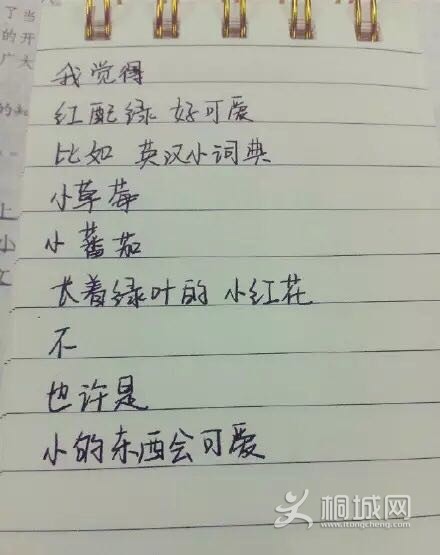 了当
的开
广大
我觉得
红配绿 好可爱
比如 英汉小词典
小草莓
小蕃茄
长着绿叶的 小红花
不
也许是
小的东西会可爱
上
小
桐城网
www.itongcheng.com